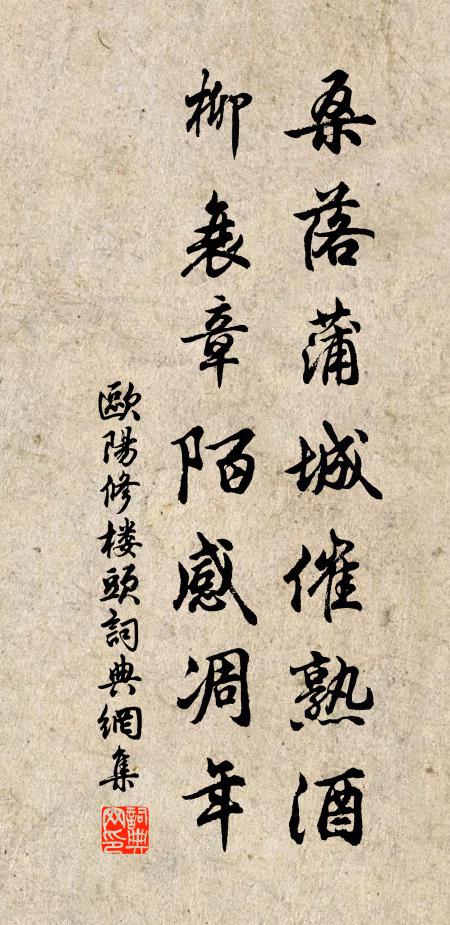 桑落蒲城催熟酒
柳衰章陌感凋年
歐陽修楼頭詞典網集
詞典网印